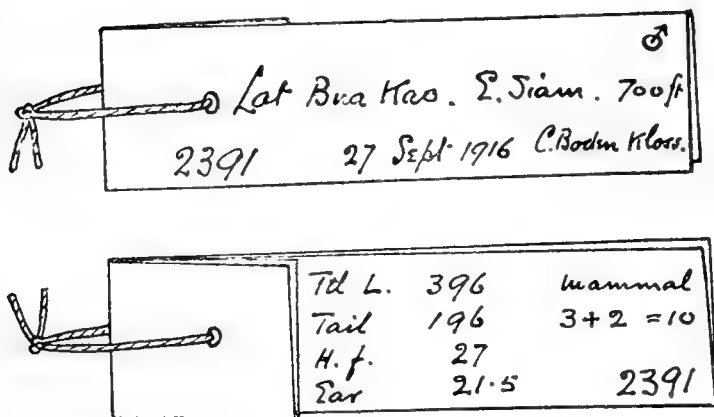 ♂
Lat Bua Kao. E. Siam. 700ft
2391 27 Sept 1916 C. Boden Kloss.
Ttl L. 396 mammal
Tail 196 3+2 =10
H. f. 27
Ear 21·5 2391